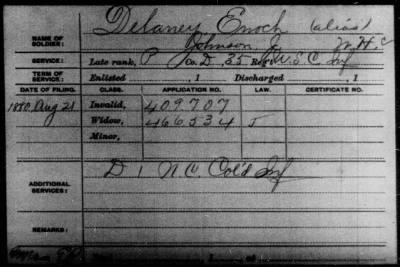 NAME OF SOLDIER: Delaney Enoch (alias)
Johnson
SERVICE: Late rank, P Co. D, 35 Reg't U.S.C. Inf
TERM OF SERVICE: Enlisted , 1 Discharged , 1
DATE OF FILING. CLASS. APPLICATION NO. LAW. CERTIFICATE NO.
1880, Aug 21 Invalid, 409707
Widow, 466534
Minor,
ADDITIONAL SERVICES: D 1 N C Col'd Inf
REMARKS: